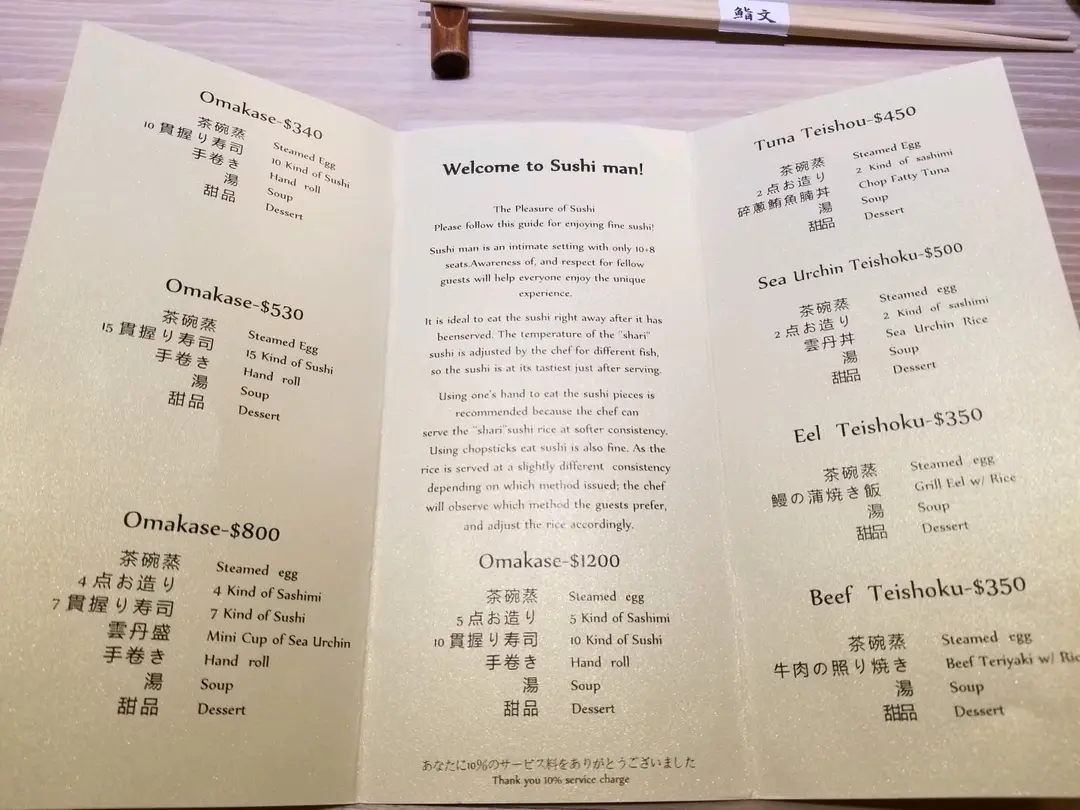 鮨文
Omakase-$340
茶碗蒸 Steamed Egg
10 貫握り寿司 10 Kind of Sushi
手巻き Hand roll
湯 Soup
甜品 Dessert
Omakase-$530
茶碗蒸 Steamed Egg
15 貫握り寿司 15 Kind of Sushi
手巻き Hand roll
湯 Soup
甜品 Dessert
Omakase-$800
茶碗蒸 Steamed egg
4 点お造り 4 Kind of Sashimi
7 貫握り寿司 7 Kind of Sushi
雲丹盛 Mini Cup of Sea Urchin
手巻き Hand roll
湯 Soup
甜品 Dessert
Welcome to Sushi man!
The Pleasure of Sushi
Please follow this guide for enjoying fine sushi!
Sushi man is an intimate setting with only 10+8
seats.Awareness of, and respect for fellow
guests will help everyone enjoy the unique
experience.
It is ideal to eat the sushi right away after it has
beenserved. The temperature of the "shari"
sushi is adjusted by the chef for different fish,
so the sushi is at its tastiest just after serving.
Using one's hand to eat the sushi pieces is
recommended because the chef can
serve the "shari"sushi rice at softer consistency.
Using chopsticks eat sushi is also fine. As the
rice is served at a slightly different consistency
depending on which method issued; the chef
will observe which method the guests prefer,
and adjust the rice accordingly.
Omakase-$1200
茶碗蒸 Steamed egg
5 点お造り 5 Kind of Sashimi
10 貫握り寿司 10 Kind of Sushi
手巻き Hand roll
湯 Soup
甜品 Dessert
あなたに10%のサービス料をありがとうございました
Thank you 10% service charge
Tuna Teishou-$450
茶碗蒸 Steamed Egg
2 点お造り 2 Kind of sashimi
碎蔥鮪魚腩丼 Chop Fatty Tuna
湯 Soup
甜品 Dessert
Sea Urchin Teishoku-$500
茶碗蒸 Steamed egg
2 点お造り 2 Kind of sashimi
雲丹丼 Sea Urchin Rice
湯 Soup
甜品 Dessert
Eel Teishoku-$350
茶碗蒸 Steamed egg
鰻の蒲焼き飯 Grill Eel w/ Rice
湯 Soup
甜品 Dessert
Beef Teishoku-$350
茶碗蒸 Steamed egg
牛肉の照り焼き Beef Teriyaki w/ Ric
湯 Soup
甜品 Dessert